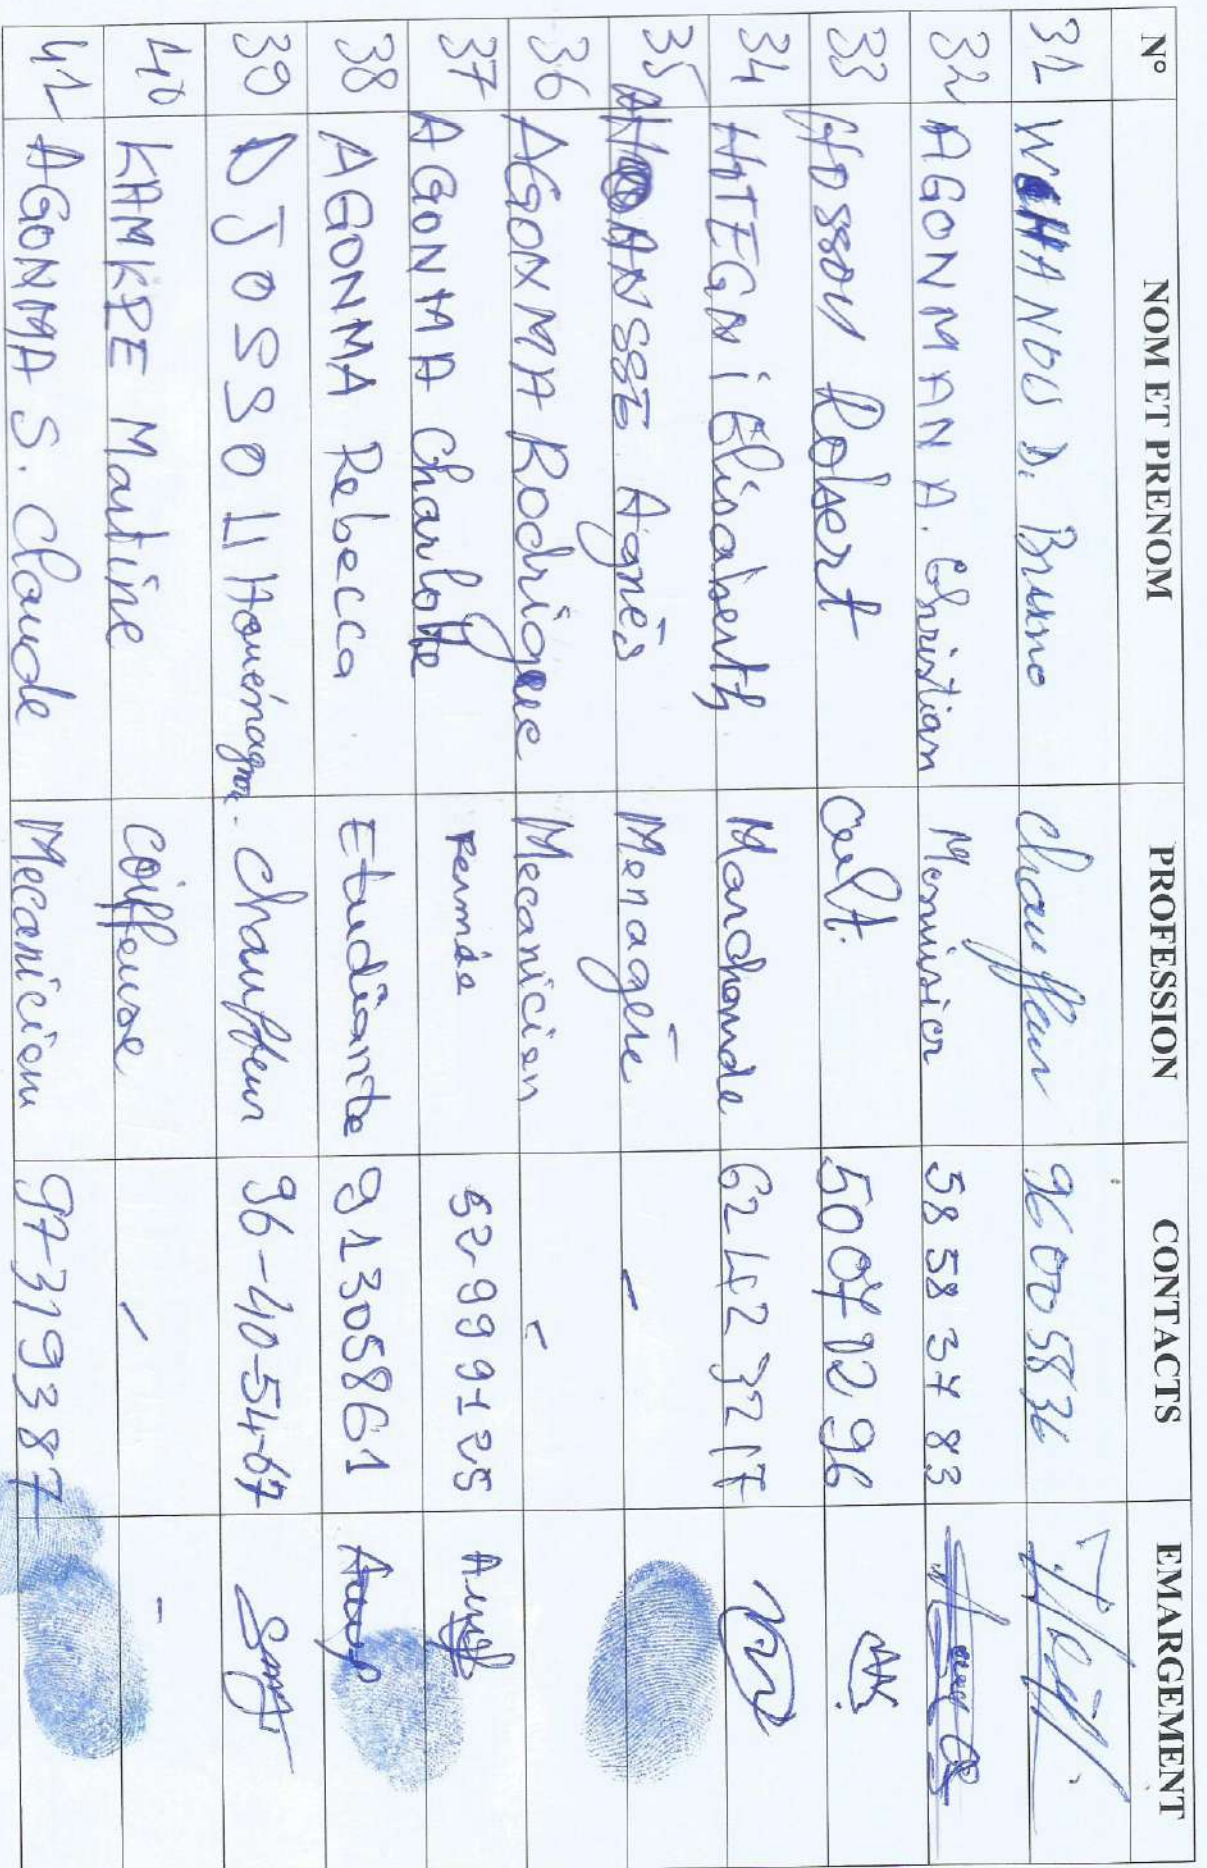 N° NOM ET PRENOM PROFESSION CONTACTS EMARGEMENT
31 D. Bruno chauffeur 96 00 58 36
32 AGONMAN A. Christian Menuisier 58 58 34 83
33 Robert Cult. 5007 02 96
34 HITEGNi Elisabeth Marchande 62 42 32 17
35 Agnès Menagère -
36 AGONMA Rodrigue Mecanicien -
37 AGONMA Charlotte 52-99 91 25
38 AGONMA Rebecca Etudiante 91305861
39 DJOSSOU Houénagnon. chauffeur 96-40-54-67
40 KAMKPE Martine Coiffeuse - -
41 AGONMA S. Claude Mecanicien 97-319387